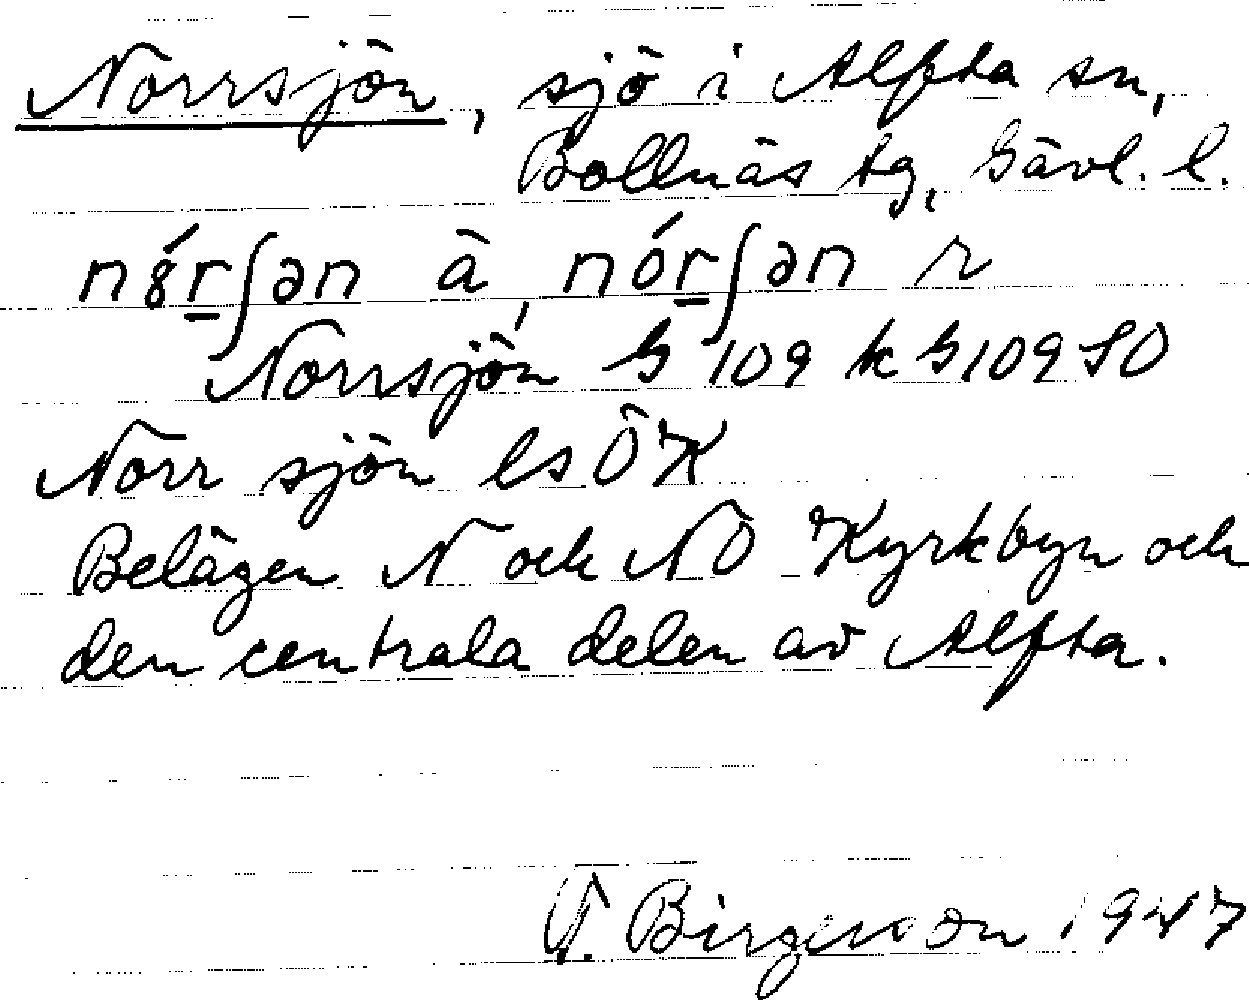 Norrsjön, sjö i Alfta sn,
Bollnäs tg, Gävl. l.
nȣ́r̲ʃən ä, nór̲ʃən r
Norrsjön G 109 k G109 SO
Norr sjön ls ÖK
Belägen N och NÖ Kyrkbyn och
den centrala delen av Alfta.
Birgersson 1947